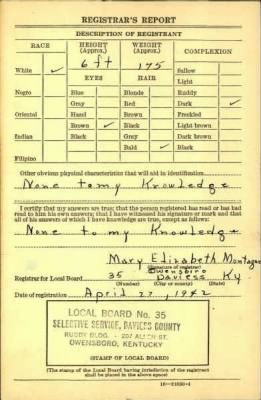 REGISTRAR'S REPORT
DESCRIPTION OF REGISTRANT
RACE HEIGHT (Approx.) WEIGHT (Approx.) COMPLEXION
6 ft 175
White ✓ Sallow
EYES HAIR Light
Negro Blue Blonde Ruddy
Gray Red Dark ✓
Oriental Hazel Brown Freckled
Brown ✓ Black Light brown
Indian Black Gray Dark brown
Bald ✓ Black
Filipino
Other obvious physical characteristics that will aid in identification
None to my Knowledge
I certify that my answers are true; that the person registered has read or has had
read to him his own answers; that I have witnessed his signature or mark and that
all of his answers of which I have knowledge are true, except as follows:
None to my Knowledge
Mary Elizabeth Montague
(Signature of registrar)
Owensboro
Registrar for Local Board 35 Daviess Ky
(Number) (City or county) (State)
Date of registration April 27, 1942
LOCAL BOARD No. 35
SELECTIVE SERVICE, DAVIESS COUNTY
RUDDY BLDG. - 207 ALLEN ST.
OWENSBORO, KENTUCKY
(STAMP OF LOCAL BOARD)
(The stamp of the Local Board having jurisdiction of the registrant
shall be placed in the above space)